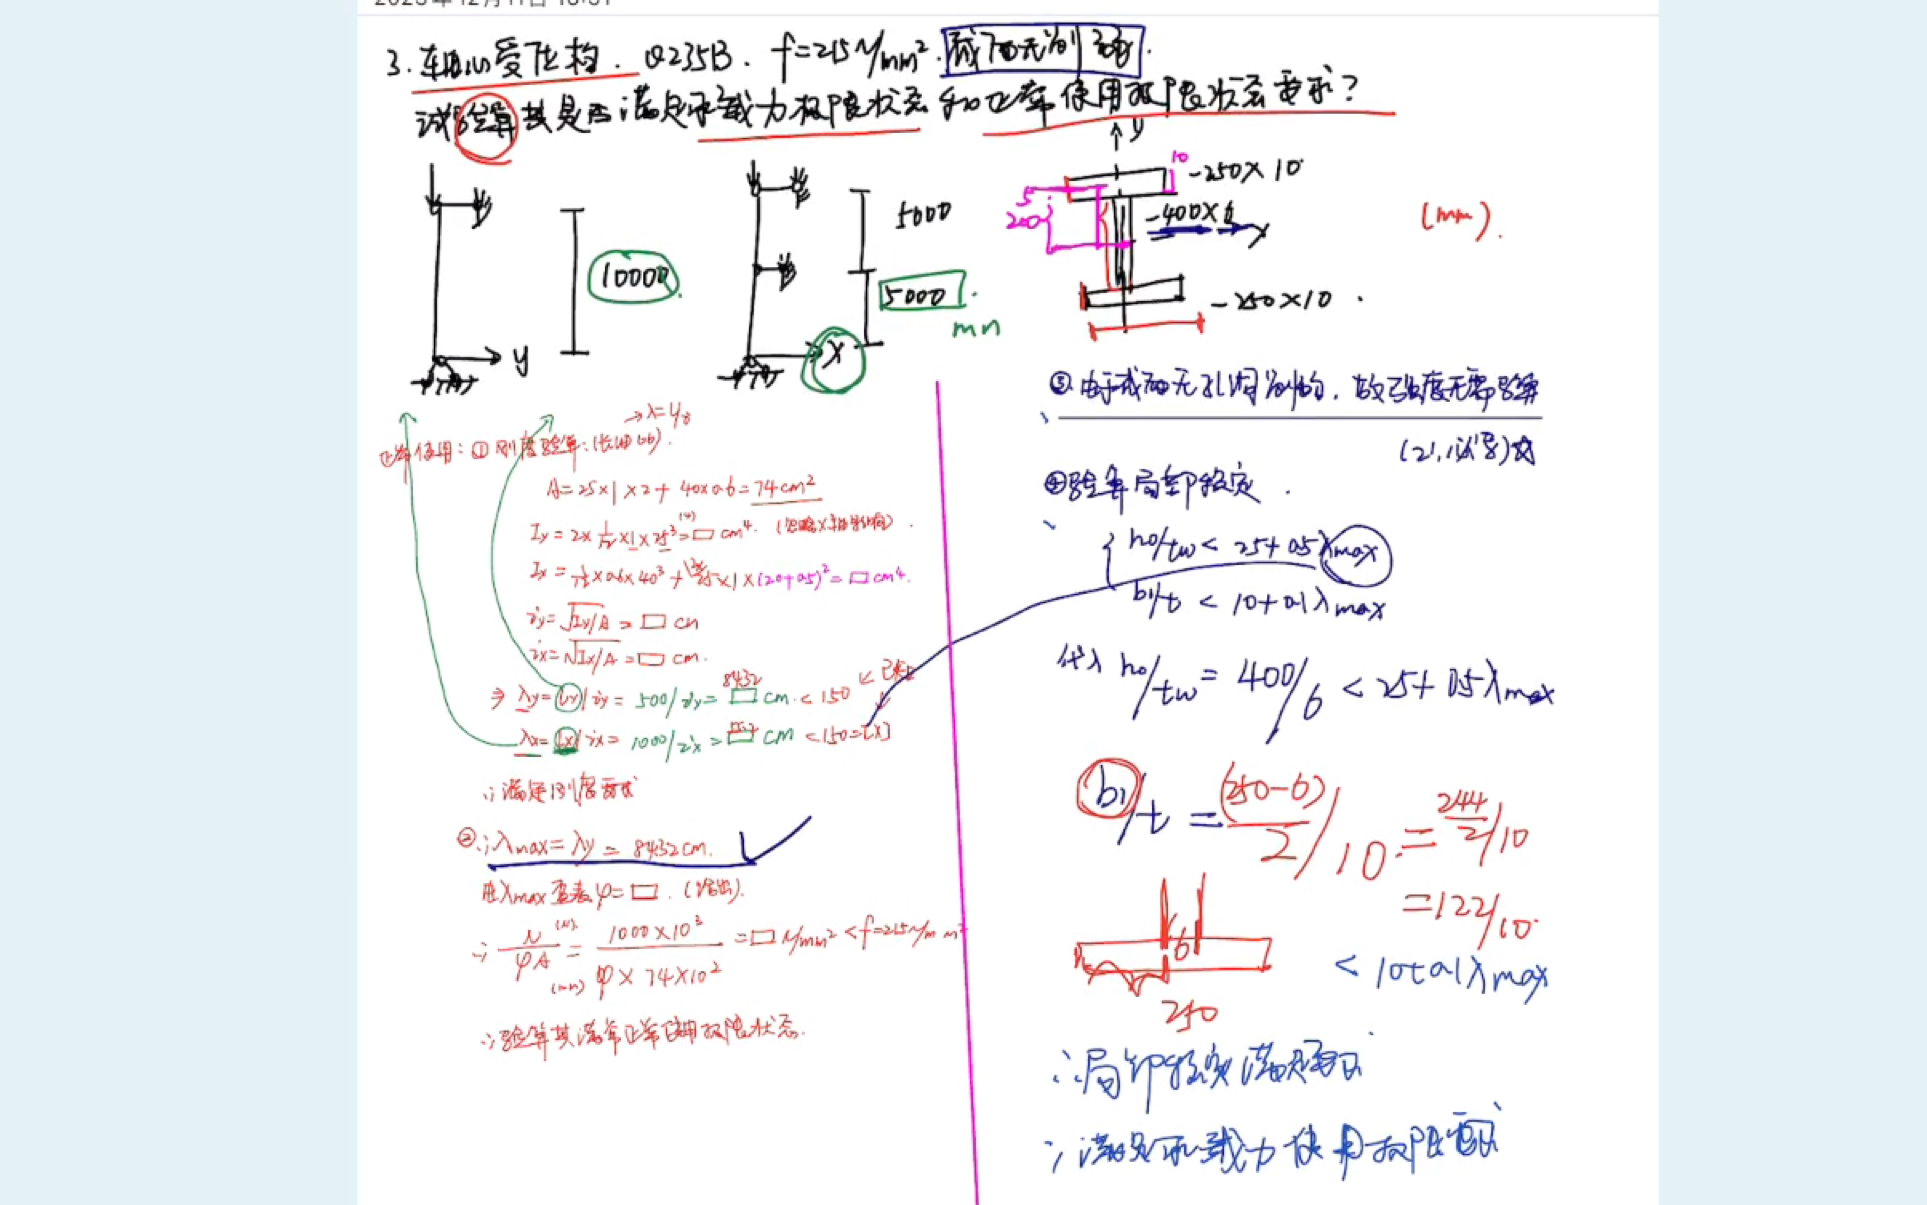 3. 轴心受压构. Q235B. f=215N/mm². 截面无削弱.
试验算其是否满足承载力极限状态和正常使用极限状态要求?
10000
y
5000
5000
mm
x
y
10
-250×10
5
200
-400×6
x
-250×10
(mm).
正常使用: ① 刚度验算: (长细比).
→λ=l/i
A=25×1×2+40×0.6=74cm²
Iy=2×1/12×1×25³=□cm⁴.
Ix=1/12×0.6×40³+2×25×1×(20+0.5)²=□cm⁴.
iy=√Iy/A=□cm
ix=√Ix/A=□cm.
⇒λy=ly/iy=500/iy=□cm.<150
8432
λx=lx/ix=1000/ix=□cm<150=[λ]
∴满足刚度要求
②∴λmax=λy=84.32cm.
由λmax查表φ=□.(给出).
∴N/φA=1000×10³/φ×74×10²=□N/mm²<f=215N/mm²
∴验算其满足正常使用极限状态.
③由于截面无孔洞削弱,故强度无需验算
④验算局部稳定.
h0/tw<25+0.5λmax
b1/t<10+0.1λmax
代入h0/tw=400/6<25+0.5λmax
b1/t=(250-6)/2/10=244/2/10
=122/10
6
250
<10+0.1λmax
∴局部稳定满足要求
∴满足承载力使用极限要求